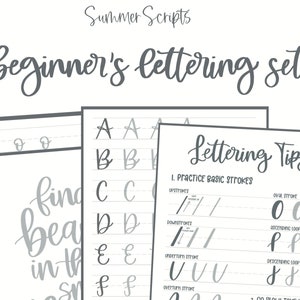 Summer Scripts
beginner's lettering set
Lettering Tips
1. PRACTICE BASIC STROKES
UPSTROKES
OVAL STROKE
DOWNSTROKES
ASCENDING LOOP
UNDERTURN STROKE
DESCENDING LOOP
OVERTURN STROKE
o o
A A A A
B B B B
C C C C
D D D D
E E E E
F F F F
find
in the